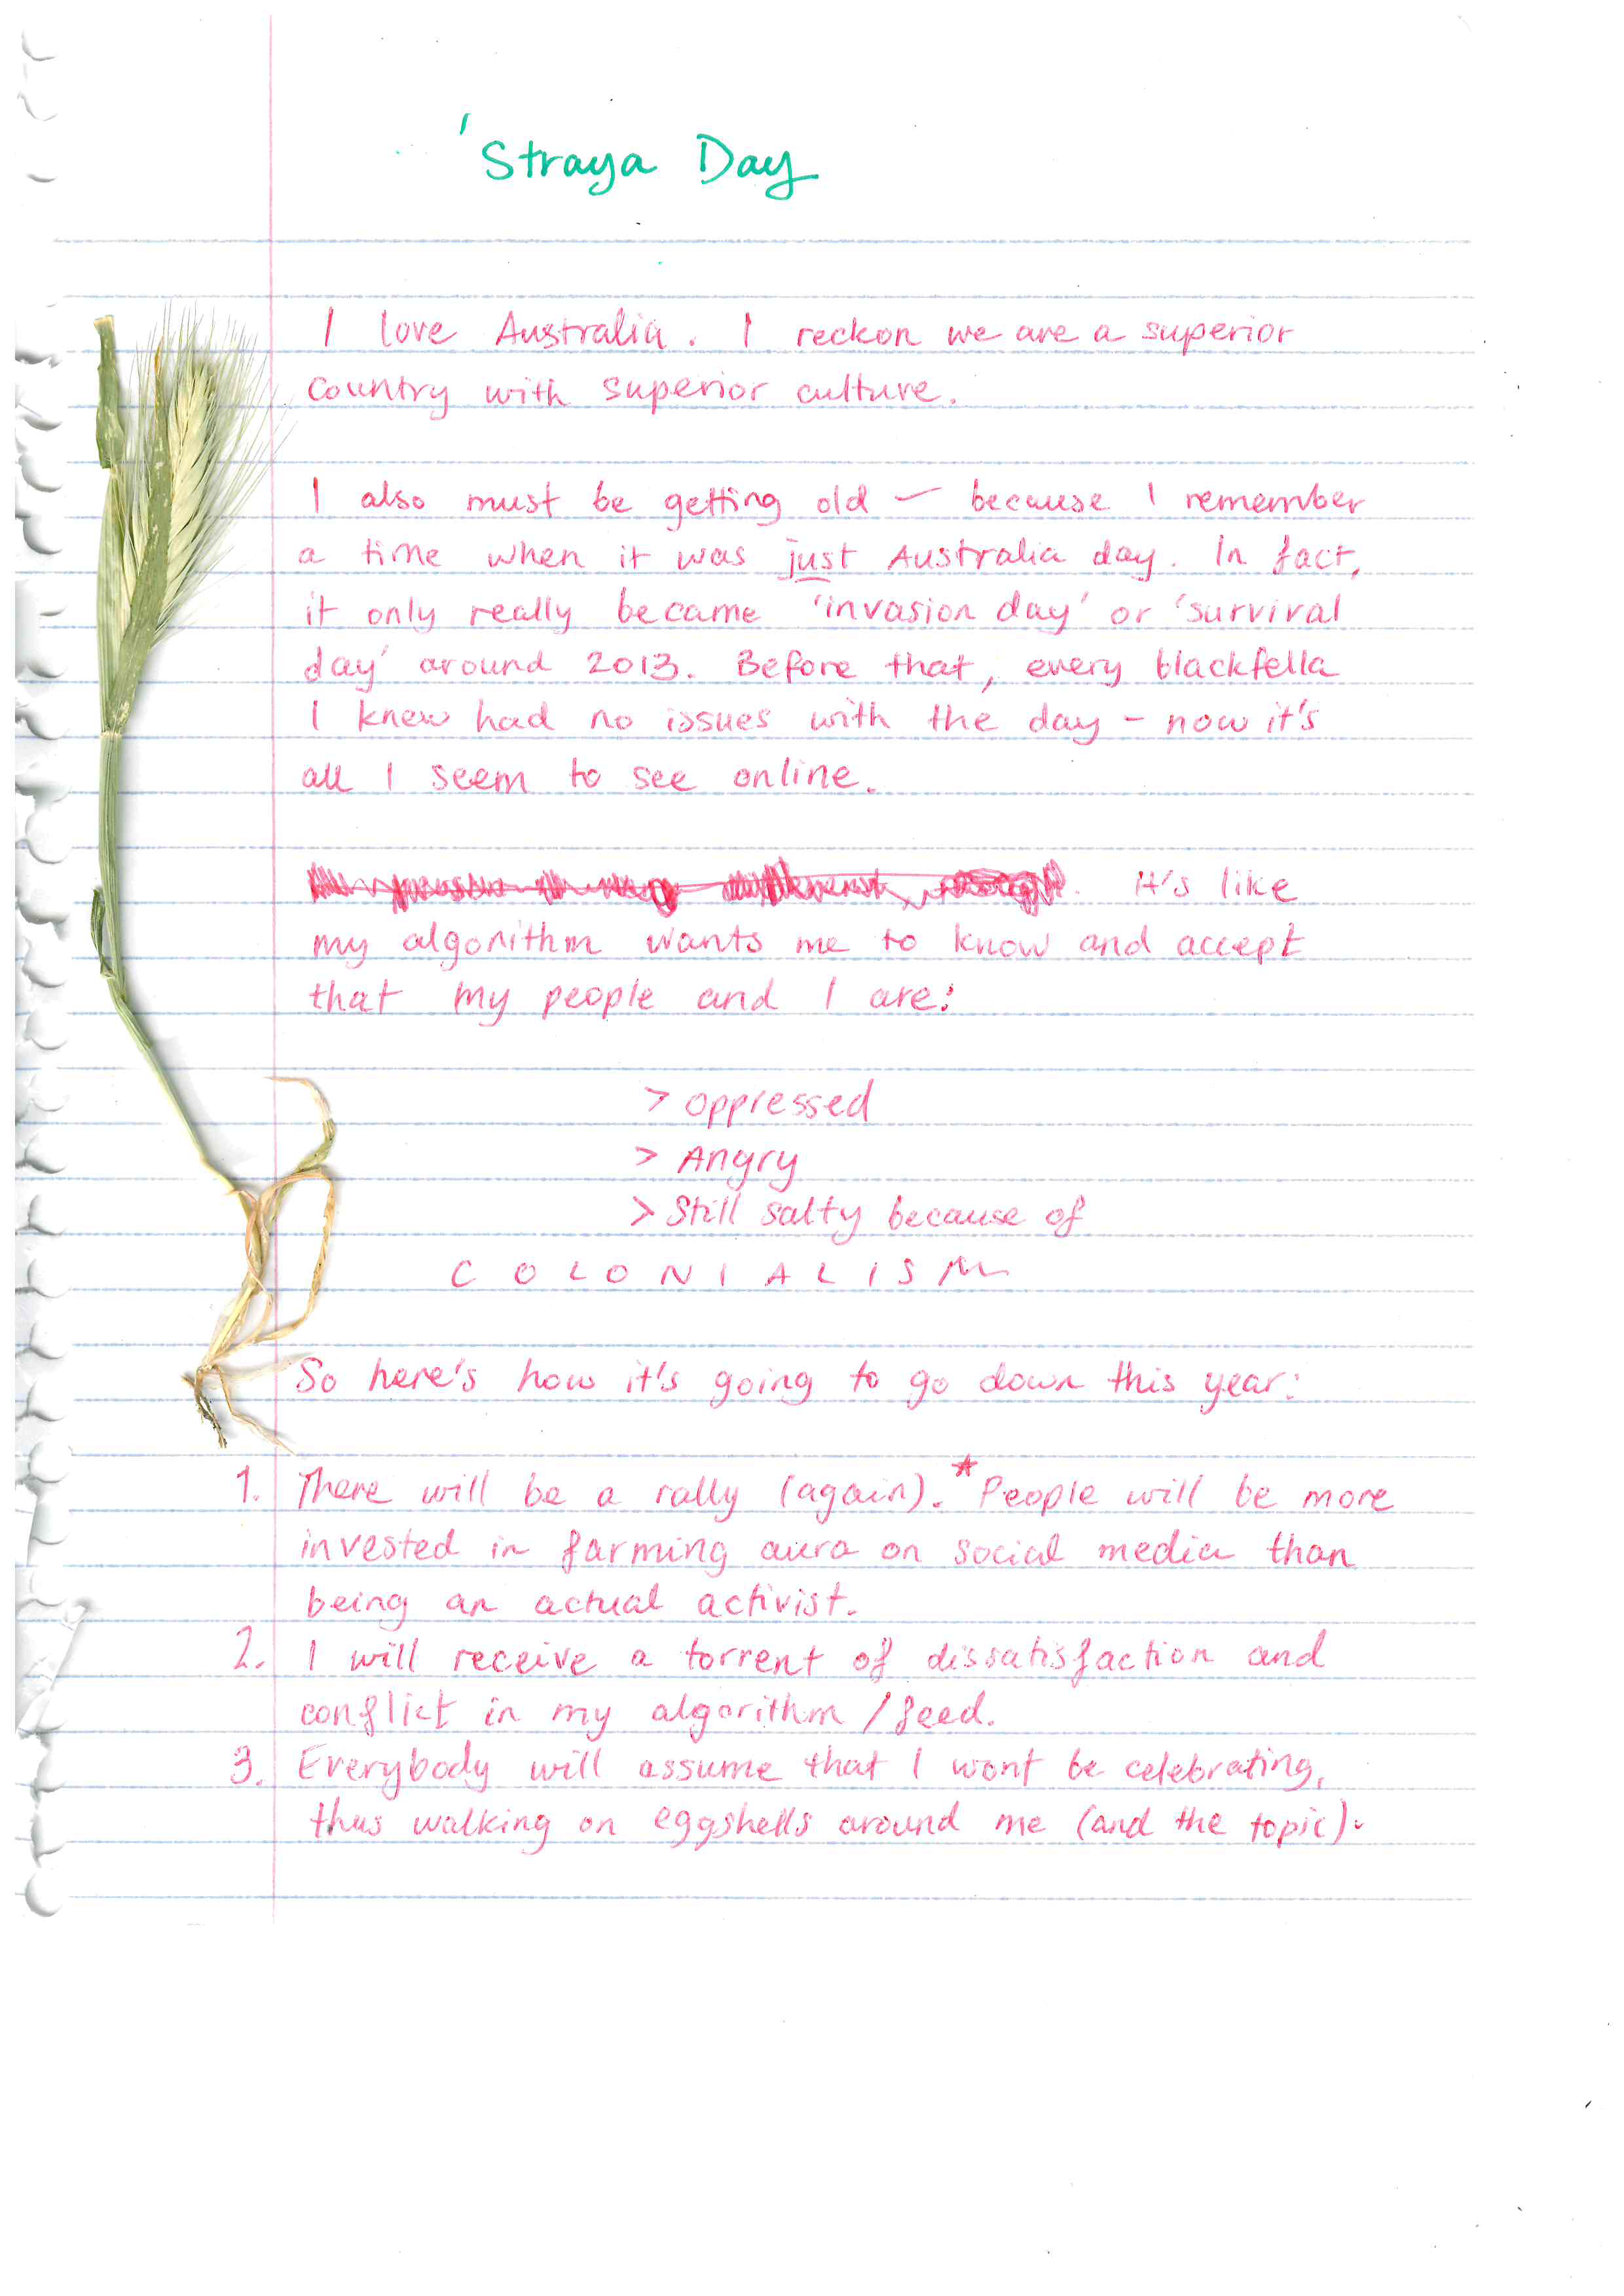 'Straya Day
I love Australia. I reckon we are a superior
country with superior culture.
I also must be getting old – because I remember
a time when it was just Australia day. In fact,
it only really became 'invasion day' or 'survival
day' around 2013. Before that, every blackfella
I knew had no issues with the day – now it's
all I seem to see online.
It's like
my algorithm wants me to know and accept
that my people and I are:
> oppressed
> Angry
> Still salty because of
C O L O N I A L I S M
So here's how it's going to go down this year:
1. There will be a rally (again).* People will be more
invested in farming aura on social media than
being an actual activist.
2. I will receive a torrent of dissatisfaction and
conflict in my algorithm / feed.
3. Everybody will assume that I wont be celebrating,
thus walking on eggshells around me (and the topic).